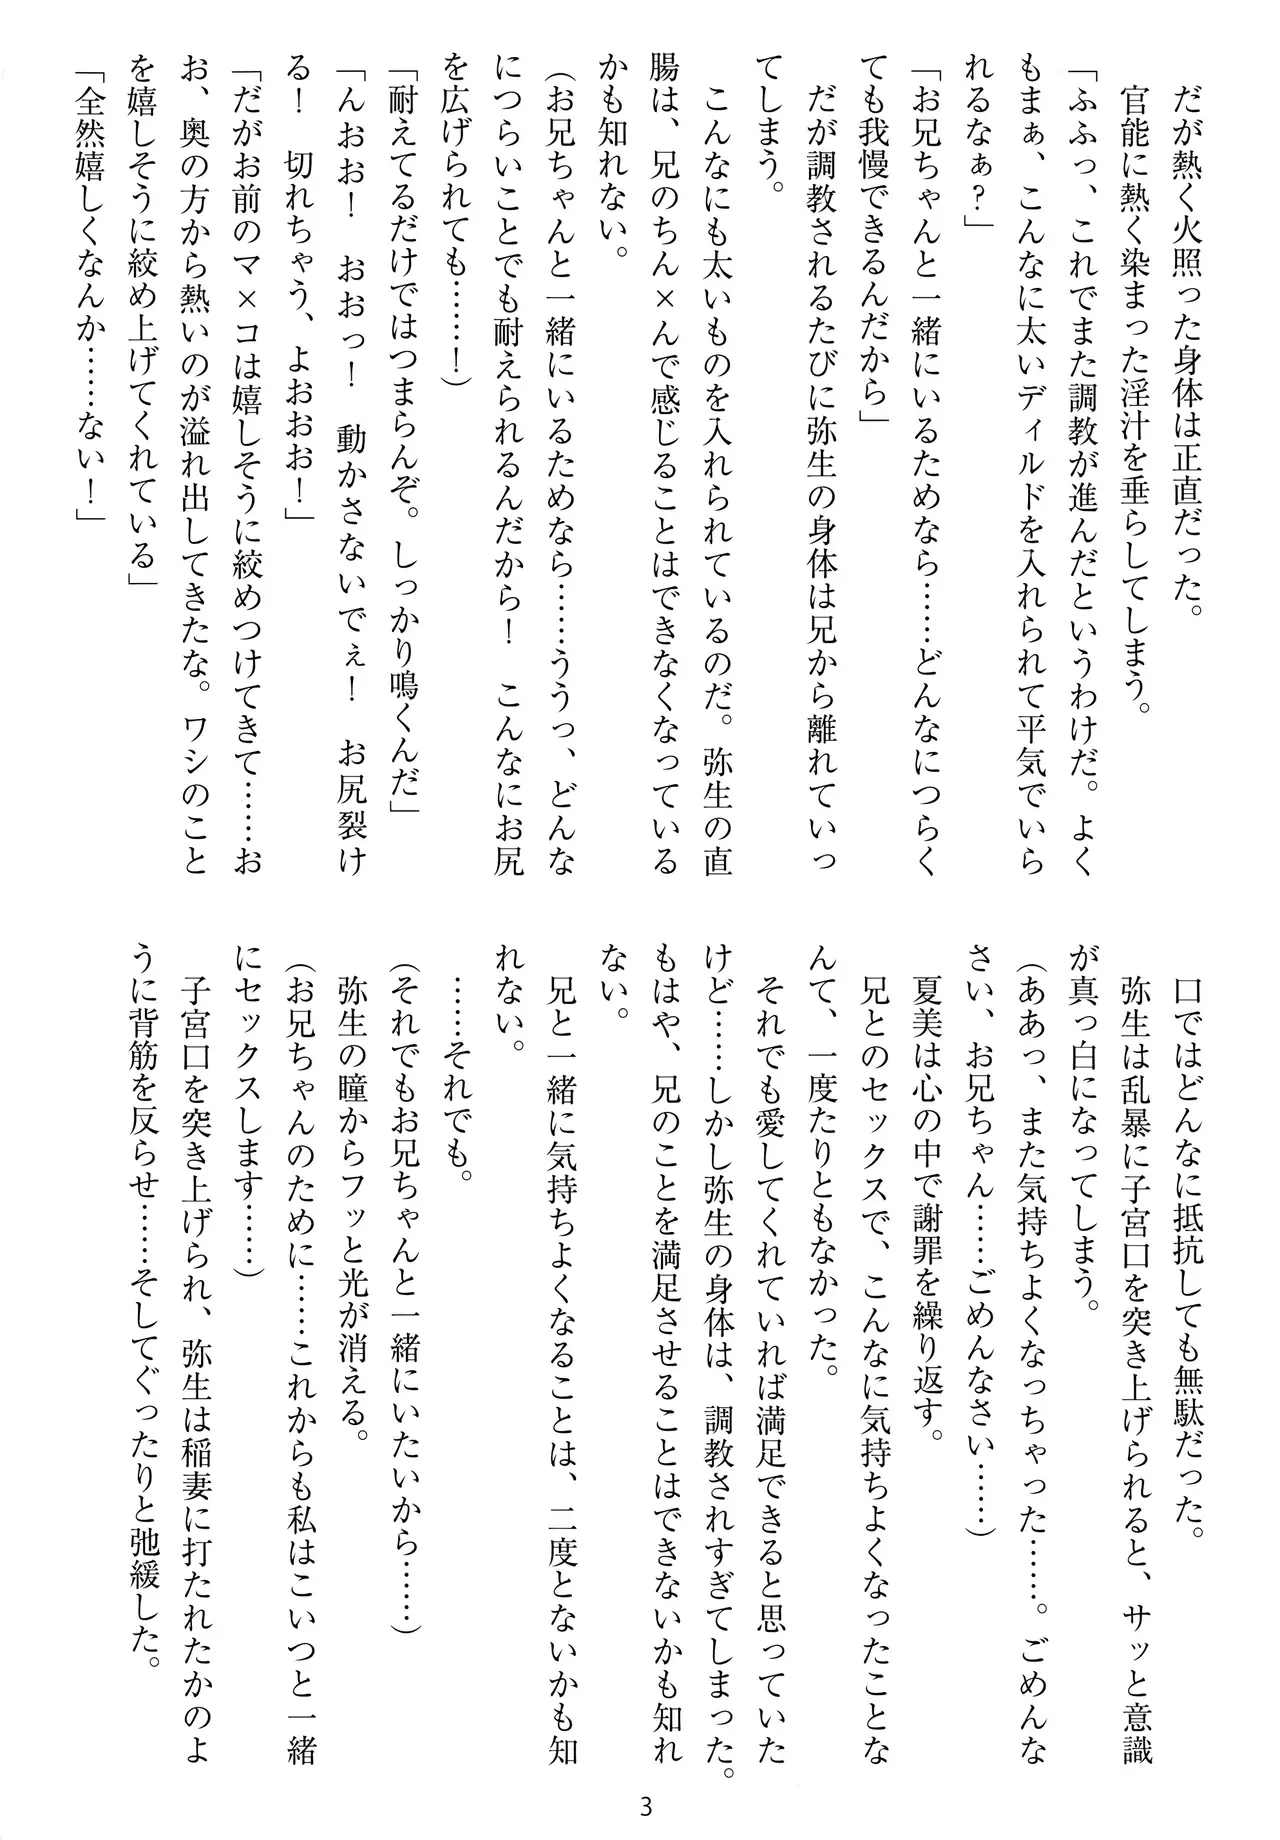 だが熱く火照った身体は正直だった。
官能に熱く染まった淫汁を垂らしてしまう。
「ふふっ、これでまた調教が進んだというわけだ。よく
もまぁ、こんなに太いディルドを入れられて平気でいら
れるなぁ?」
「お兄ちゃんと一緒にいるためなら……どんなにつらく
ても我慢できるんだから」
だが調教されるたびに弥生の身体は兄から離れていっ
てしまう。
こんなにも太いものを入れられているのだ。弥生の直
腸は、兄のちん×んで感じることはできなくなっている
かも知れない。
(お兄ちゃんと一緒にいるためなら……ううっ、どんな
につらいことでも耐えられるんだから! こんなにお尻
を広げられても……!)
「耐えてるだけではつまらんぞ。しっかり鳴くんだ」
「んおお! おおっ! 動かさないでぇ! お尻裂け
る! 切れちゃう、よおおお!」
「だがお前のマ×コは嬉しそうに絞めつけてきて……お
お、奥の方から熱いのが溢れ出してきたな。ワシのこと
を嬉しそうに絞め上げてくれている」
「全然嬉しくなんか……ない!」
口ではどんなに抵抗しても無駄だった。
弥生は乱暴に子宮口を突き上げられると、サッと意識
が真っ白になってしまう。
(ああっ、また気持ちよくなっちゃった……。ごめんな
さい、お兄ちゃん……ごめんなさい……)
夏美は心の中で謝罪を繰り返す。
兄とのセックスで、こんなに気持ちよくなったことな
んて、一度たりともなかった。
それでも愛してくれていれば満足できると思っていた
けど……しかし弥生の身体は、調教されすぎてしまった。
もはや、兄のことを満足させることはできないかも知れ
ない。
兄と一緒に気持ちよくなることは、二度とないかも知
れない。
……それでも。
(それでもお兄ちゃんと一緒にいたいから……)
弥生の瞳からフッと光が消える。
(お兄ちゃんのために……これからも私はこいつと一緒
にセックスします……)
子宮口を突き上げられ、弥生は稲妻に打たれたかのよ
うに背筋を反らせ……そしてぐったりと弛緩した。
3